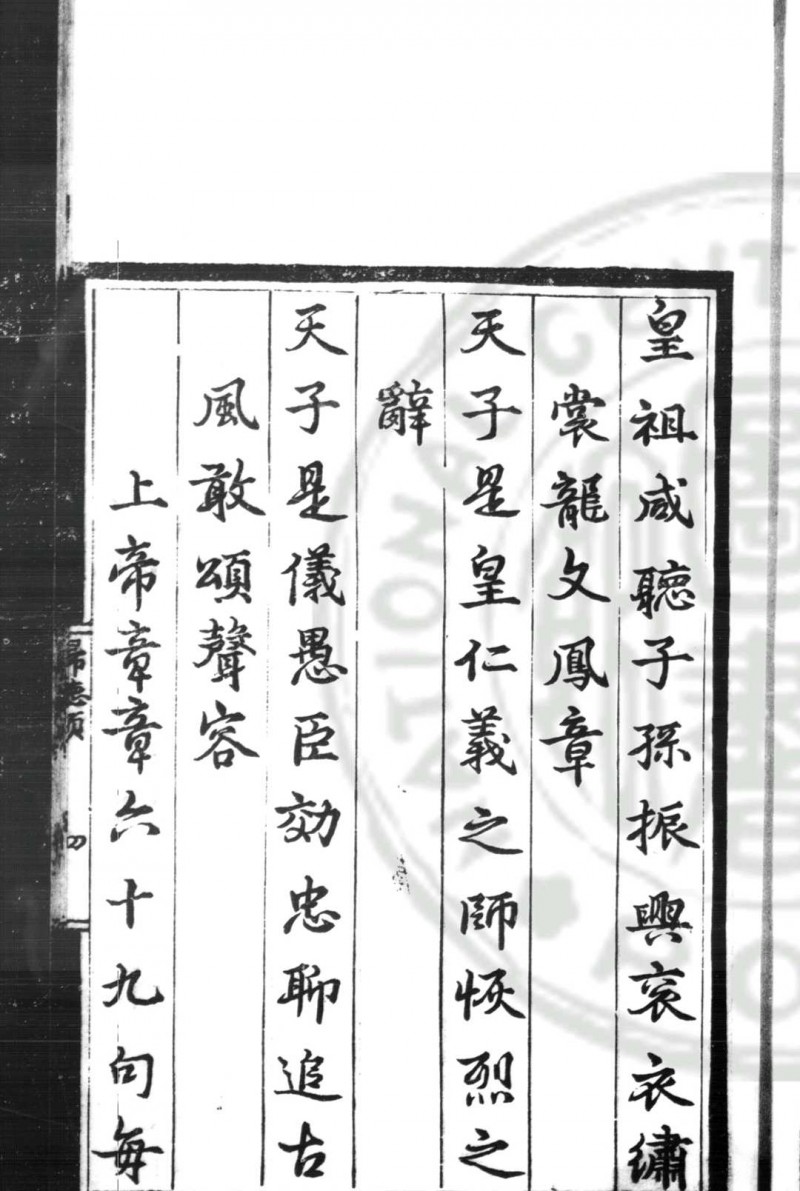 皇祖咸聽子孫振興袞衣繡
裳龍文鳳章
天子是皇仁義之師恢烈之
辭
天子是儀愚臣効忠聊追古
風敢頌聲容
上帝章章六十九句每
四